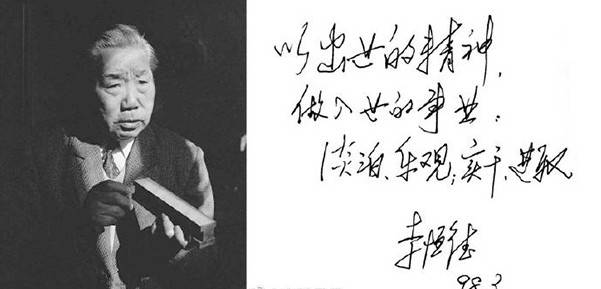 以出世的精神，
做入世的事业。
淡泊、乐观；实干、进取
李恒德
98.